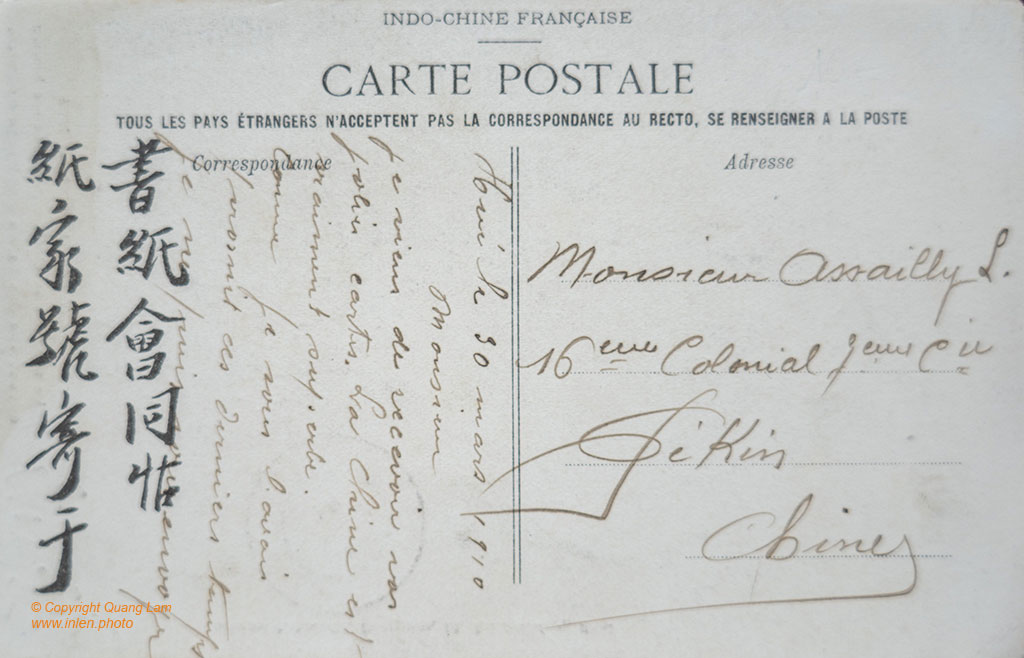 INDO-CHINE FRANÇAISE
CARTE POSTALE
TOUS LES PAYS ÉTRANGERS N'ACCEPTENT PAS LA CORRESPONDANCE AU RECTO, SE RENSEIGNER A LA POSTE
Correspondance
Hué le 30 mars 1910
Monsieur
Je viens de recevoir vos
jolies cartes. La Chine est
vraiment superbe.
comme je vous l'avais
promis ces derniers temps
Je ne puis vous envoyer
書紙會同怗
紙家號寄于
Adresse
Monsieur Assailly L.
16eme Colonial 7eme Cie
Pékin
Chine
© Copyright Quang Lam
www.inlen.photo